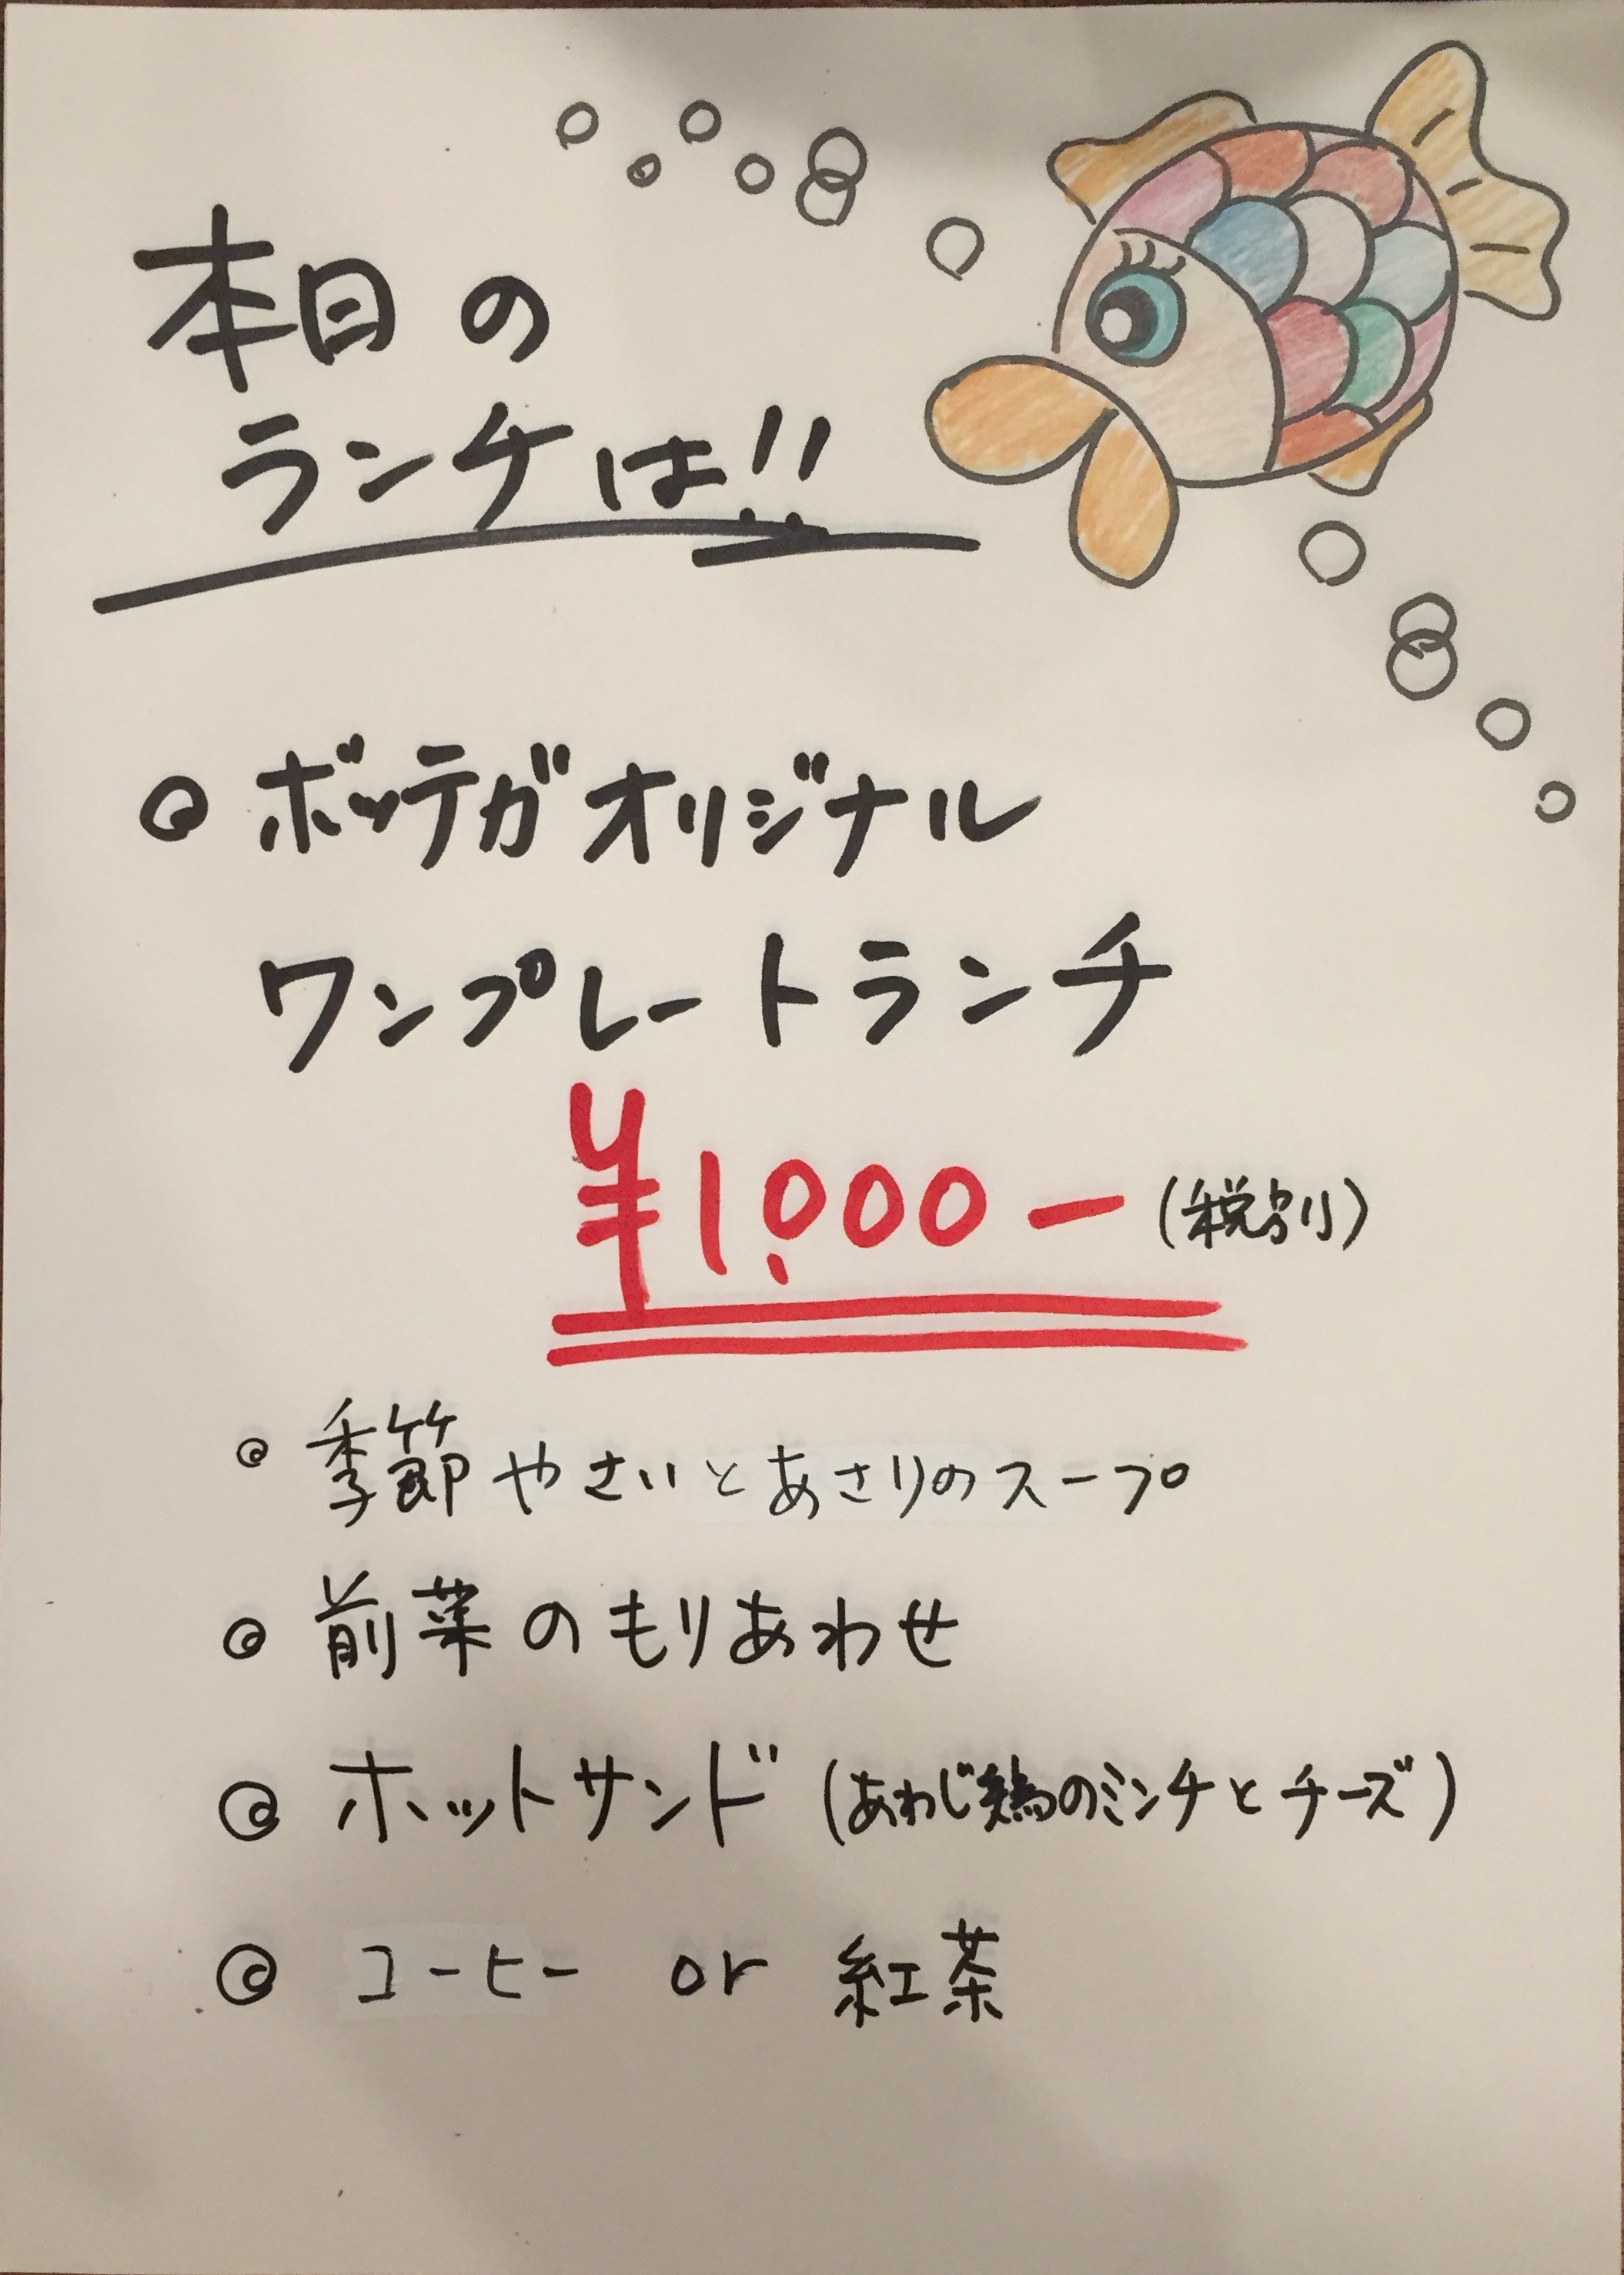 本日の
ランチは!!
ボッテガオリジナル
ワンプレートランチ
¥1,000ー(税別)
季節やさいとあさりのスープ
前菜のもりあわせ
ホットサンド(あわじ鶏のミンチとチーズ)
コーヒー or 紅茶